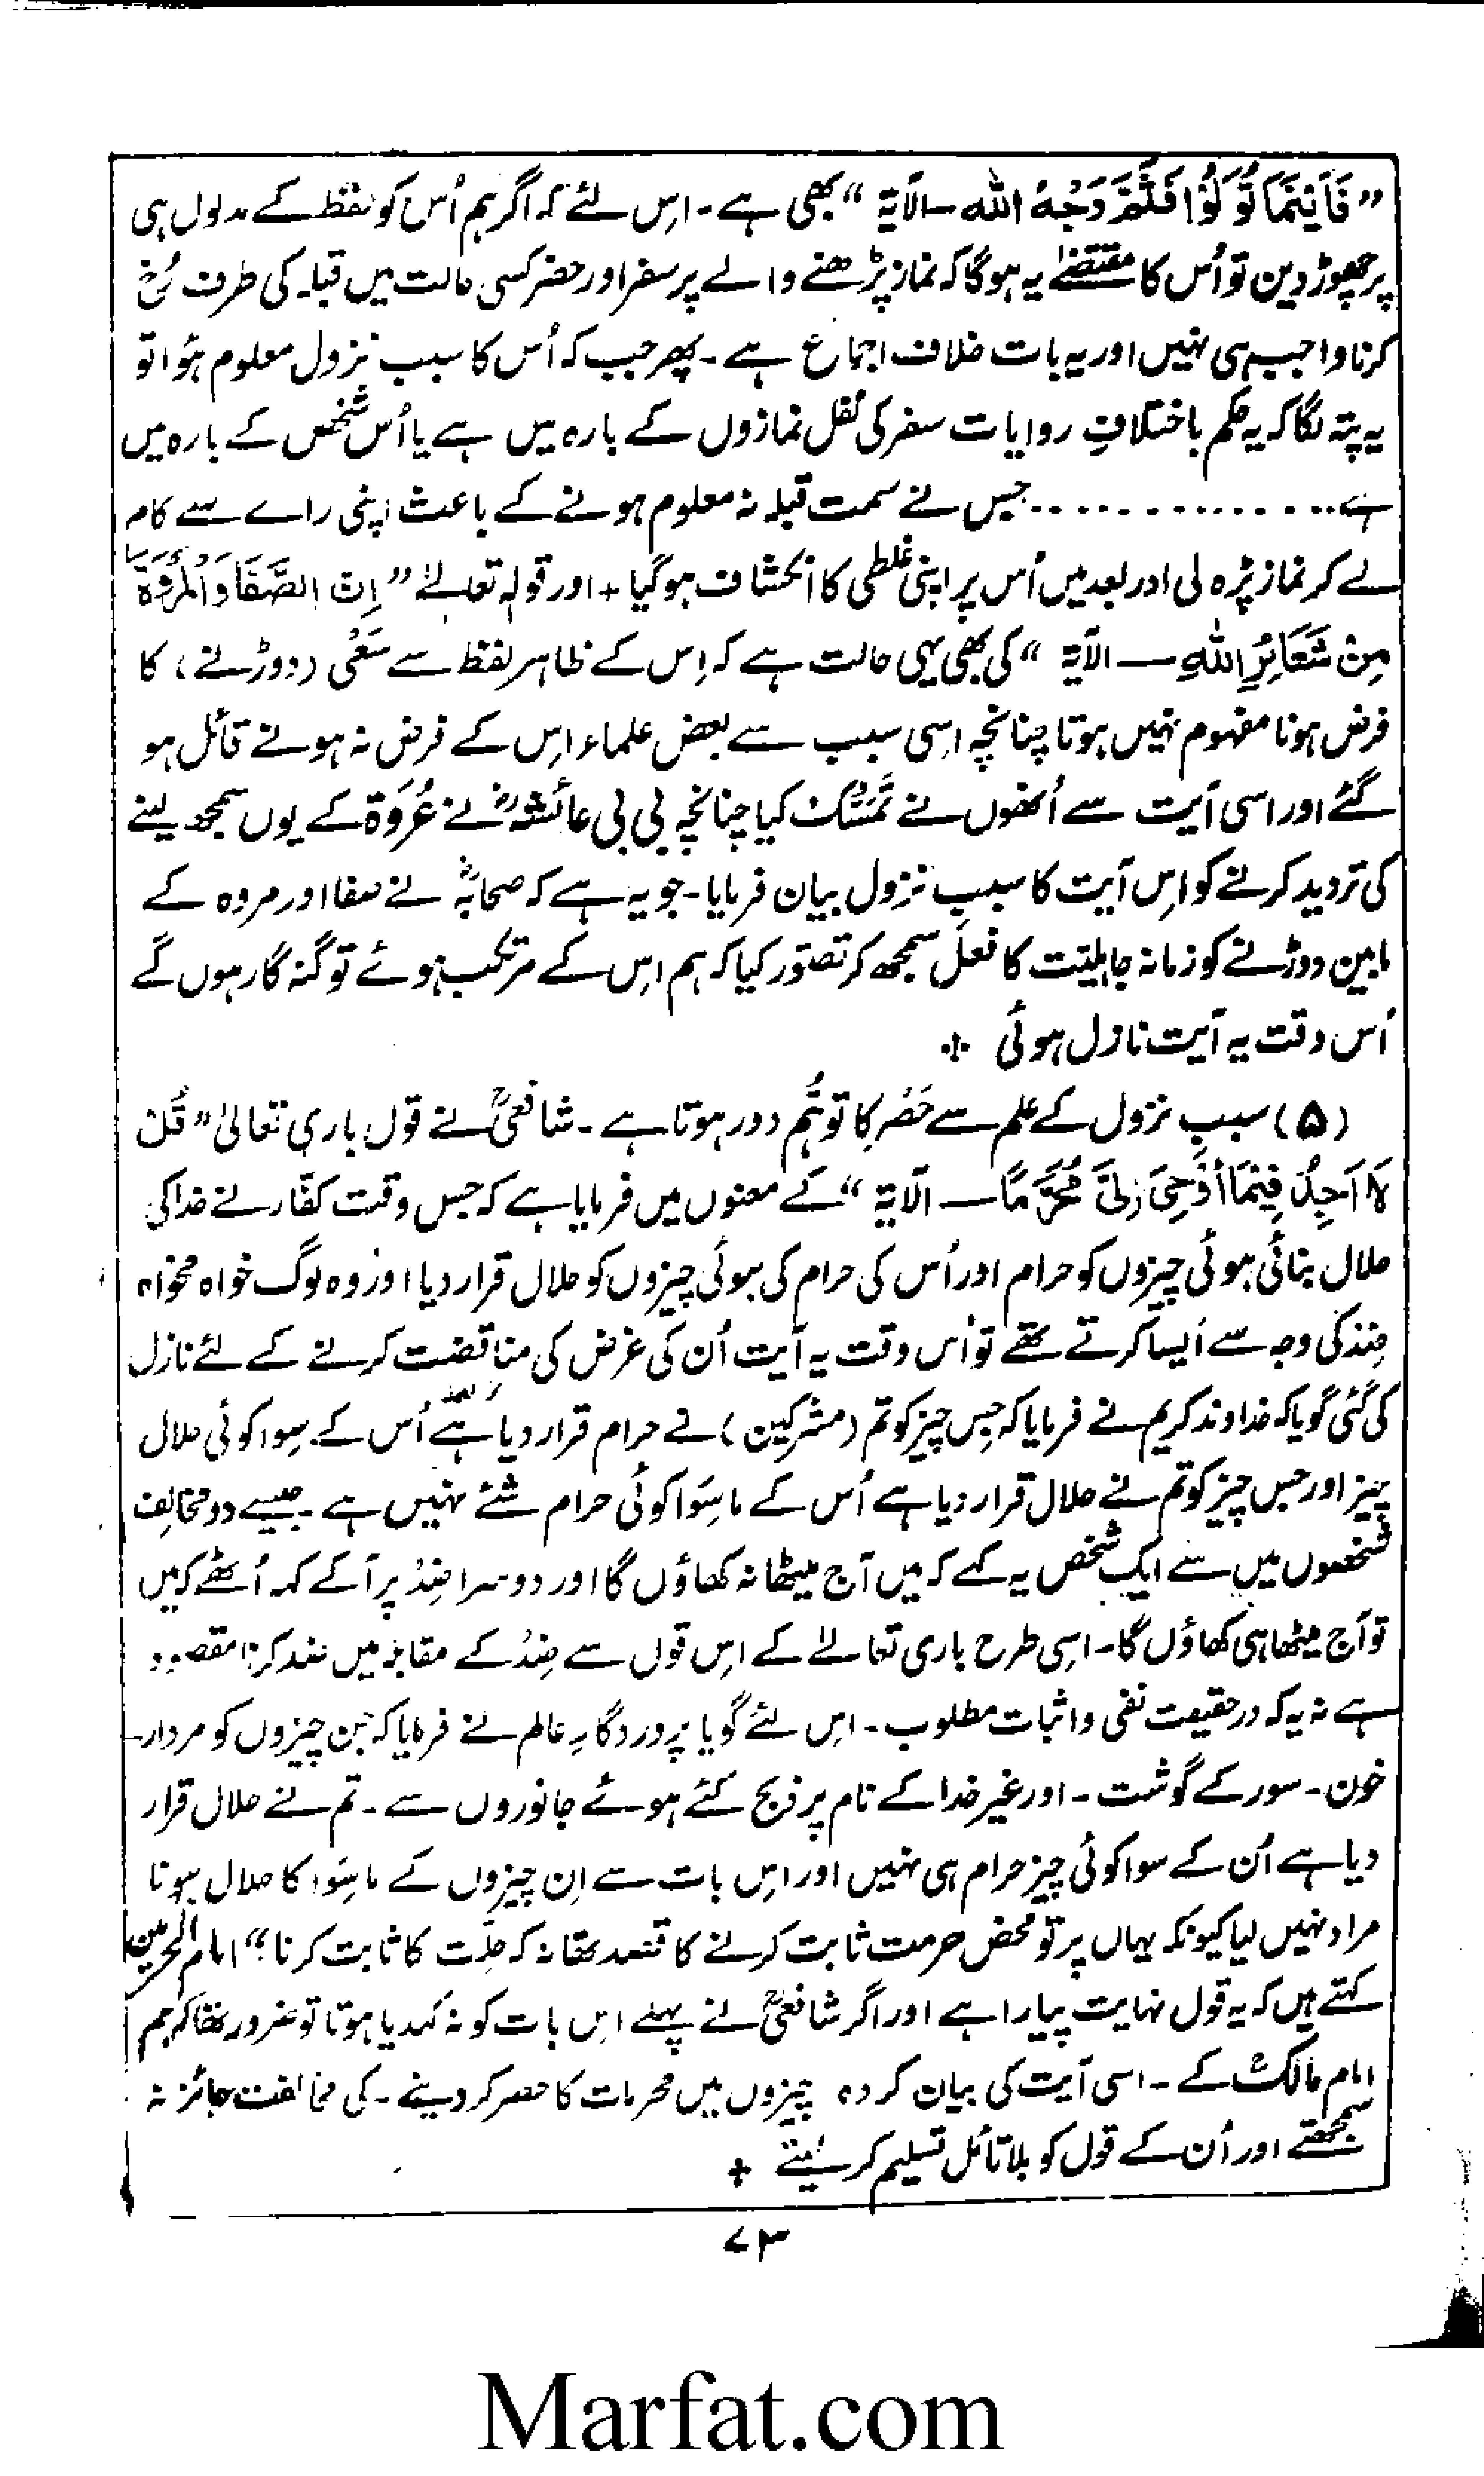 ”فَاَیْنَمَا تُوَلُّوْا فَثَمَّ وَجْہُ اللہِ۔الآیۃ“ بھی ہے۔ اِس لئے کہ اگر ہم اُس کو لفظ کے مدلول ہی
پر چھوڑ دین تو اُس کا مقتضےٰ یہ ہوگا کہ نماز پڑھنے والے پر سفر اور حضر کسی حالت میں قبلہ کی طرف رُخ
کرنا واجب ہی نہیں اور یہ بات خلاف اجماع ہے۔ پھر جب کہ اُس کا سبب نزول معلوم ہؤا تو
یہ پتہ لگا کہ یہ حکم باختلافِ روایات سفر کی نفل نمازوں کے بارہ میں ہے یا اُس شخص کے بارہ میں
ہے............... جس نے سمت قبلہ نہ معلوم ہونے کے باعث اپنی راے سے کام
لے کر نماز پڑہ لی اور بعد میں اُس پر اپنی غلطی کا انکشاف ہوگیا + اور قولہ تعالےٰ ”اِنَّ الصَّفَا وَالْمَرْوَۃَ
مِنْ شَعَائِرِ اللہِ ــ الآیۃ “ کی بھی یہی حالت ہے کہ اِس کے ظاہر لفظ سے سَعْی (دوڑنے) کا
فرض ہونا مفہوم نہیں ہوتا چنانچہ اسی سبب سے بعض علماء اِس کے فرض نہ ہونے قائل ہو
گئے اور اسی آیت سے اُنھوں نے تَمَسُّک کیا چنانچہ بی بی عائشہؓ نے عُرْوَۃ کے یوں سمجھ لینے
کی تردید کرنے کو اِس آیت کا سببِ نزول بیان فرمایا۔ جو یہ ہے کہ صحابہؓ نے صفا اور مروہ کے
مابین دوڑنے کو زمانہ جاہلیّت کا فعل سمجھ کر تصوّر کیا کہ ہم اِس کے مرتکب ہوئے تو گنہ گار ہوں گے
اُس وقت یہ آیت نازل ہوئی ÷
(۵) سببِ نزول کے علم سے حَصْر کا توہُّم دور ہوتا ہے۔ شافعیؒ نے قول باری تعالیٰ ”قُلْ
لَا اَجِدُ فِیْمَا اُوْحِیَ اِلَیَّ مُحَرَّمًا ــ الآیۃ “ کے معنوں میں فرمایا ہے کہ جس وقت کفّار نے خدا کی
حلال بنائی ہوئی چیزوں کو حرام اور اُس کی حرام کی ہوئی چیزوں کو حلال قرار دیا اور وہ لوگ خواہ مخواہ
ضِد کی وجہ سے اَیسا کرتے تھے تو اُس وقت یہ آیت اُن کی غرض کی مناقضت کرنے کے لئے نازل
کی گئی گویا کہ خداوند کریم نے فرمایا کہ جِس چیز کو تم (مشرکین) نے حرام قرار دیا ہے اُس کے سِوا کوئی حلال
چیز اور جس چیز کو تم نے حلال قرار دیا ہے اُس کے ماسِوَا کوئی حرام شئے نہیں ہے۔ جیسے دو مخالِف
شخصوں میں سے ایک شخص یہ کہے کہ میں آج میٹھا نہ کھاؤں گا اور دوسرا ضِدْ پر آکے کہہ اُٹھے کہ میں
تو آج میٹھا ہی کھاؤں گا۔ اِسِی طرح باری تعالےٰ کے اِس قول سے ضِدْ کے مقابلہ میں ضد کرنا مقصود
ہے نہ یہ کہ درحقیقت نفی و اثبات مطلوب۔ اِس لئے گویا پروردگارِ عالم نے فرمایا کہ جِن چیزوں کو مردار۔
خون۔ سور کے گوشت۔ اور غیر خدا کے نام پر ذبح کئے ہوئے جانوروں سے۔ تم نے حلال قرار
دیا ہے اُن کے سوا کوئی چیز حرام ہی نہیں اور اِس بات سے اِن چیزوں کے ماسِوَا کا حلال ہونا
مراد نہیں لیا کیونکہ یہاں پر تو محض حرمت ثابت کرنے کا قصد تھا نہ کہ حِلَّت کا ثابت کرنا“ امام الحرمین
کہتے ہیں کہ یہ قول نہایت پیارا ہے اور اگر شافعیؒ نے پہلے اِس بات کو نہ کہدیا ہوتا تو ضرور تھا کہ ہم
امام مالکؒ کے۔ اسی آیت کی بیان کردہ چیزوں میں محرمات کا حصر کر دینے۔ کی مخالفت جائز نہ
سمجھتے اور اُن کے قول کو بلا تأمّل تسلیم کر لیتے +
۷۳
Marfat.com